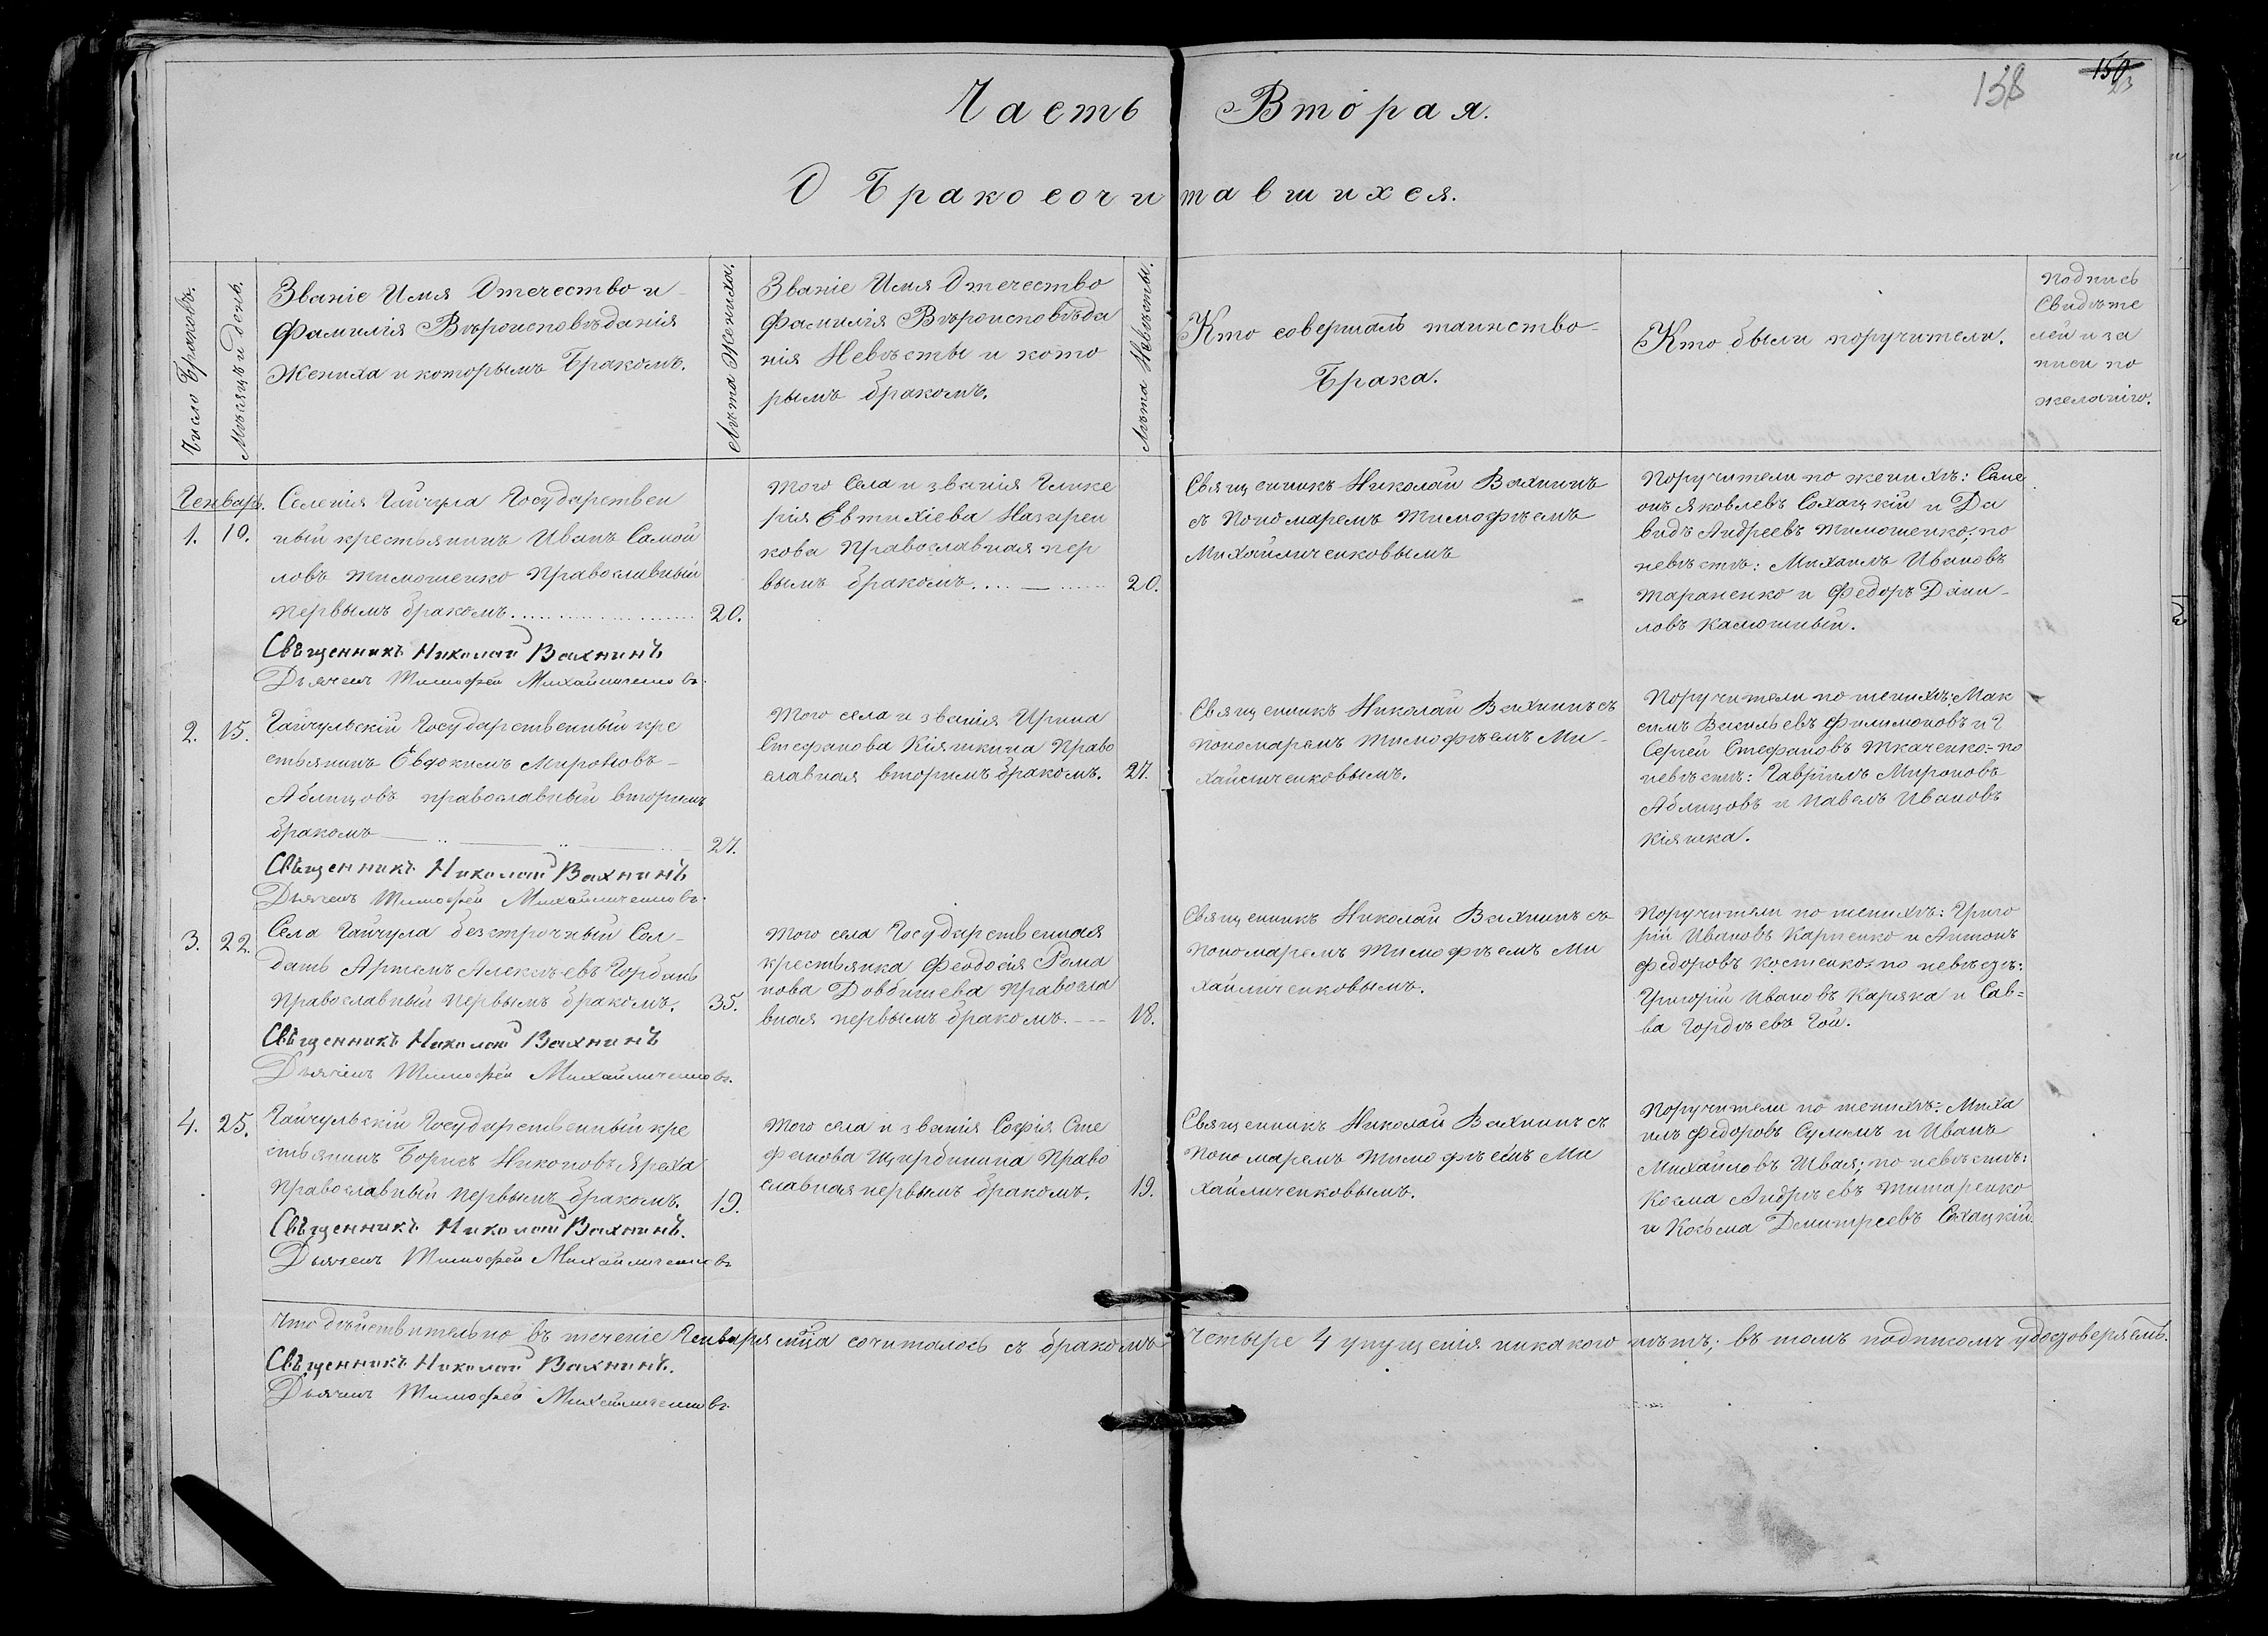 138
150
Часть Вторая.
О Бракосочитавшихся.
Число Браковъ.
Мѣсяцъ и день.
Званіе Имя Отечество и
Фамилія Вѣроисповѣданія
Жениха и которымъ Бракомъ.
Лѣта Жениха.
Званіе Имя Отечество
Фамилія Вѣроисповѣда
нія Невѣсты и кото
рымъ бракомъ.
Лѣта Невѣсты.
Кто совершалъ таинство
Брака.
Кто были поручители.
Подпись
Свидѣте
лей и за
писи по
желанію.
Генварь.
1. 10.
Селенія Гайчула Государствен
ный крестьянинъ Иванъ Самой
ловъ Тимошенко Православный
первымъ бракомъ
20.
Священникъ Николай Вахнинъ
Дьячекъ Тимофей Михайличенковъ
Того Села и званія Глике
рія Евтихіева Назарен
кова Православная пер
вымъ бракомъ
20.
Священникъ Николай Вахнинъ
съ Пономаремъ Тимофѣемъ
Михайличенковымъ
Поручители по женихѣ: Симе
онъ Яковлевъ Сохацкій и Да
видъ Андреевъ Тимошенко; по
невѣстѣ: Михаилъ Ивановъ
Тараненко и Федоръ Дани-
ловъ Калюжный.
2. 15.
Гайчульскій Государственный кре
стьянинъ Евдокимъ Мироновъ
Аблицовъ православный вторымъ
бракомъ
27.
Священникъ Николай Вахнинъ
Дьячекъ Тимофей Михайличенковъ
Того села и званія Ирина
Стефанова Кіяшкина Право
славная вторымъ бракомъ.
27.
Священникъ Николай Вахнинъ съ
Пономаремъ Тимофѣемъ Ми-
хайличенковымъ.
Поручители по женихѣ: Мак
симъ Васильевъ Филимоновъ и
Сергей Стефановъ Ткаченко; по
невѣстѣ: Гавріилъ Мироновъ
Аблицовъ и Павелъ Ивановъ
Кіяшка.
3. 22.
Села Гайчула безсрочный Сол-
датъ Артемъ Алексѣевъ Горбань
Православный первымъ бракомъ.
35.
Священникъ Николай Вахнинъ
Дьячекъ Тимофей Михайличенковъ.
Того села Государственная
крестьянка Феодосія Рома
нова Довбишева Правосла
вная первымъ бракомъ.
18.
Священникъ Николай Вахнинъ съ
Пономаремъ Тимофѣемъ Ми
хайличенковымъ.
Поручители по женихѣ: Григо
рій Ивановъ Карпенко и Антонъ
Федоровъ Костенко; по невѣстѣ:
Григорій Ивановъ Каряка и Сав=
ва Гордѣевъ Гой.
4. 25.
Гайчульскій Государственный кре
стьянинъ Борисъ Никоновъ Яреха
Православный первымъ бракомъ.
19.
Священникъ Николай Вахнинъ.
Дьячекъ Тимофей Михайличенковъ
Того села и званія Софія Сте
фанова Щирбинина Право
славная первымъ бракомъ.
19.
Священникъ Николай Вахнинъ съ
Пономаремъ Тимофѣемъ Ми
хайличенковымъ.
Поручители по женихѣ: Миха
илъ Федоровъ Сулимъ и Иванъ
Михайловъ Швая; по невѣстѣ:
Косма Андрѣевъ Титаренко
и Косьма Димитріевъ Сохацкій.
Что дѣйствительно въ теченіе Генваря мѣсяца сочиталось съ бракомъ четыре 4 упущенія никакого нѣтъ; въ томъ подписомъ удостоверяемъ.
Священникъ Николай Вахнинъ.
Дьячекъ Тимофей Михайличенковъ